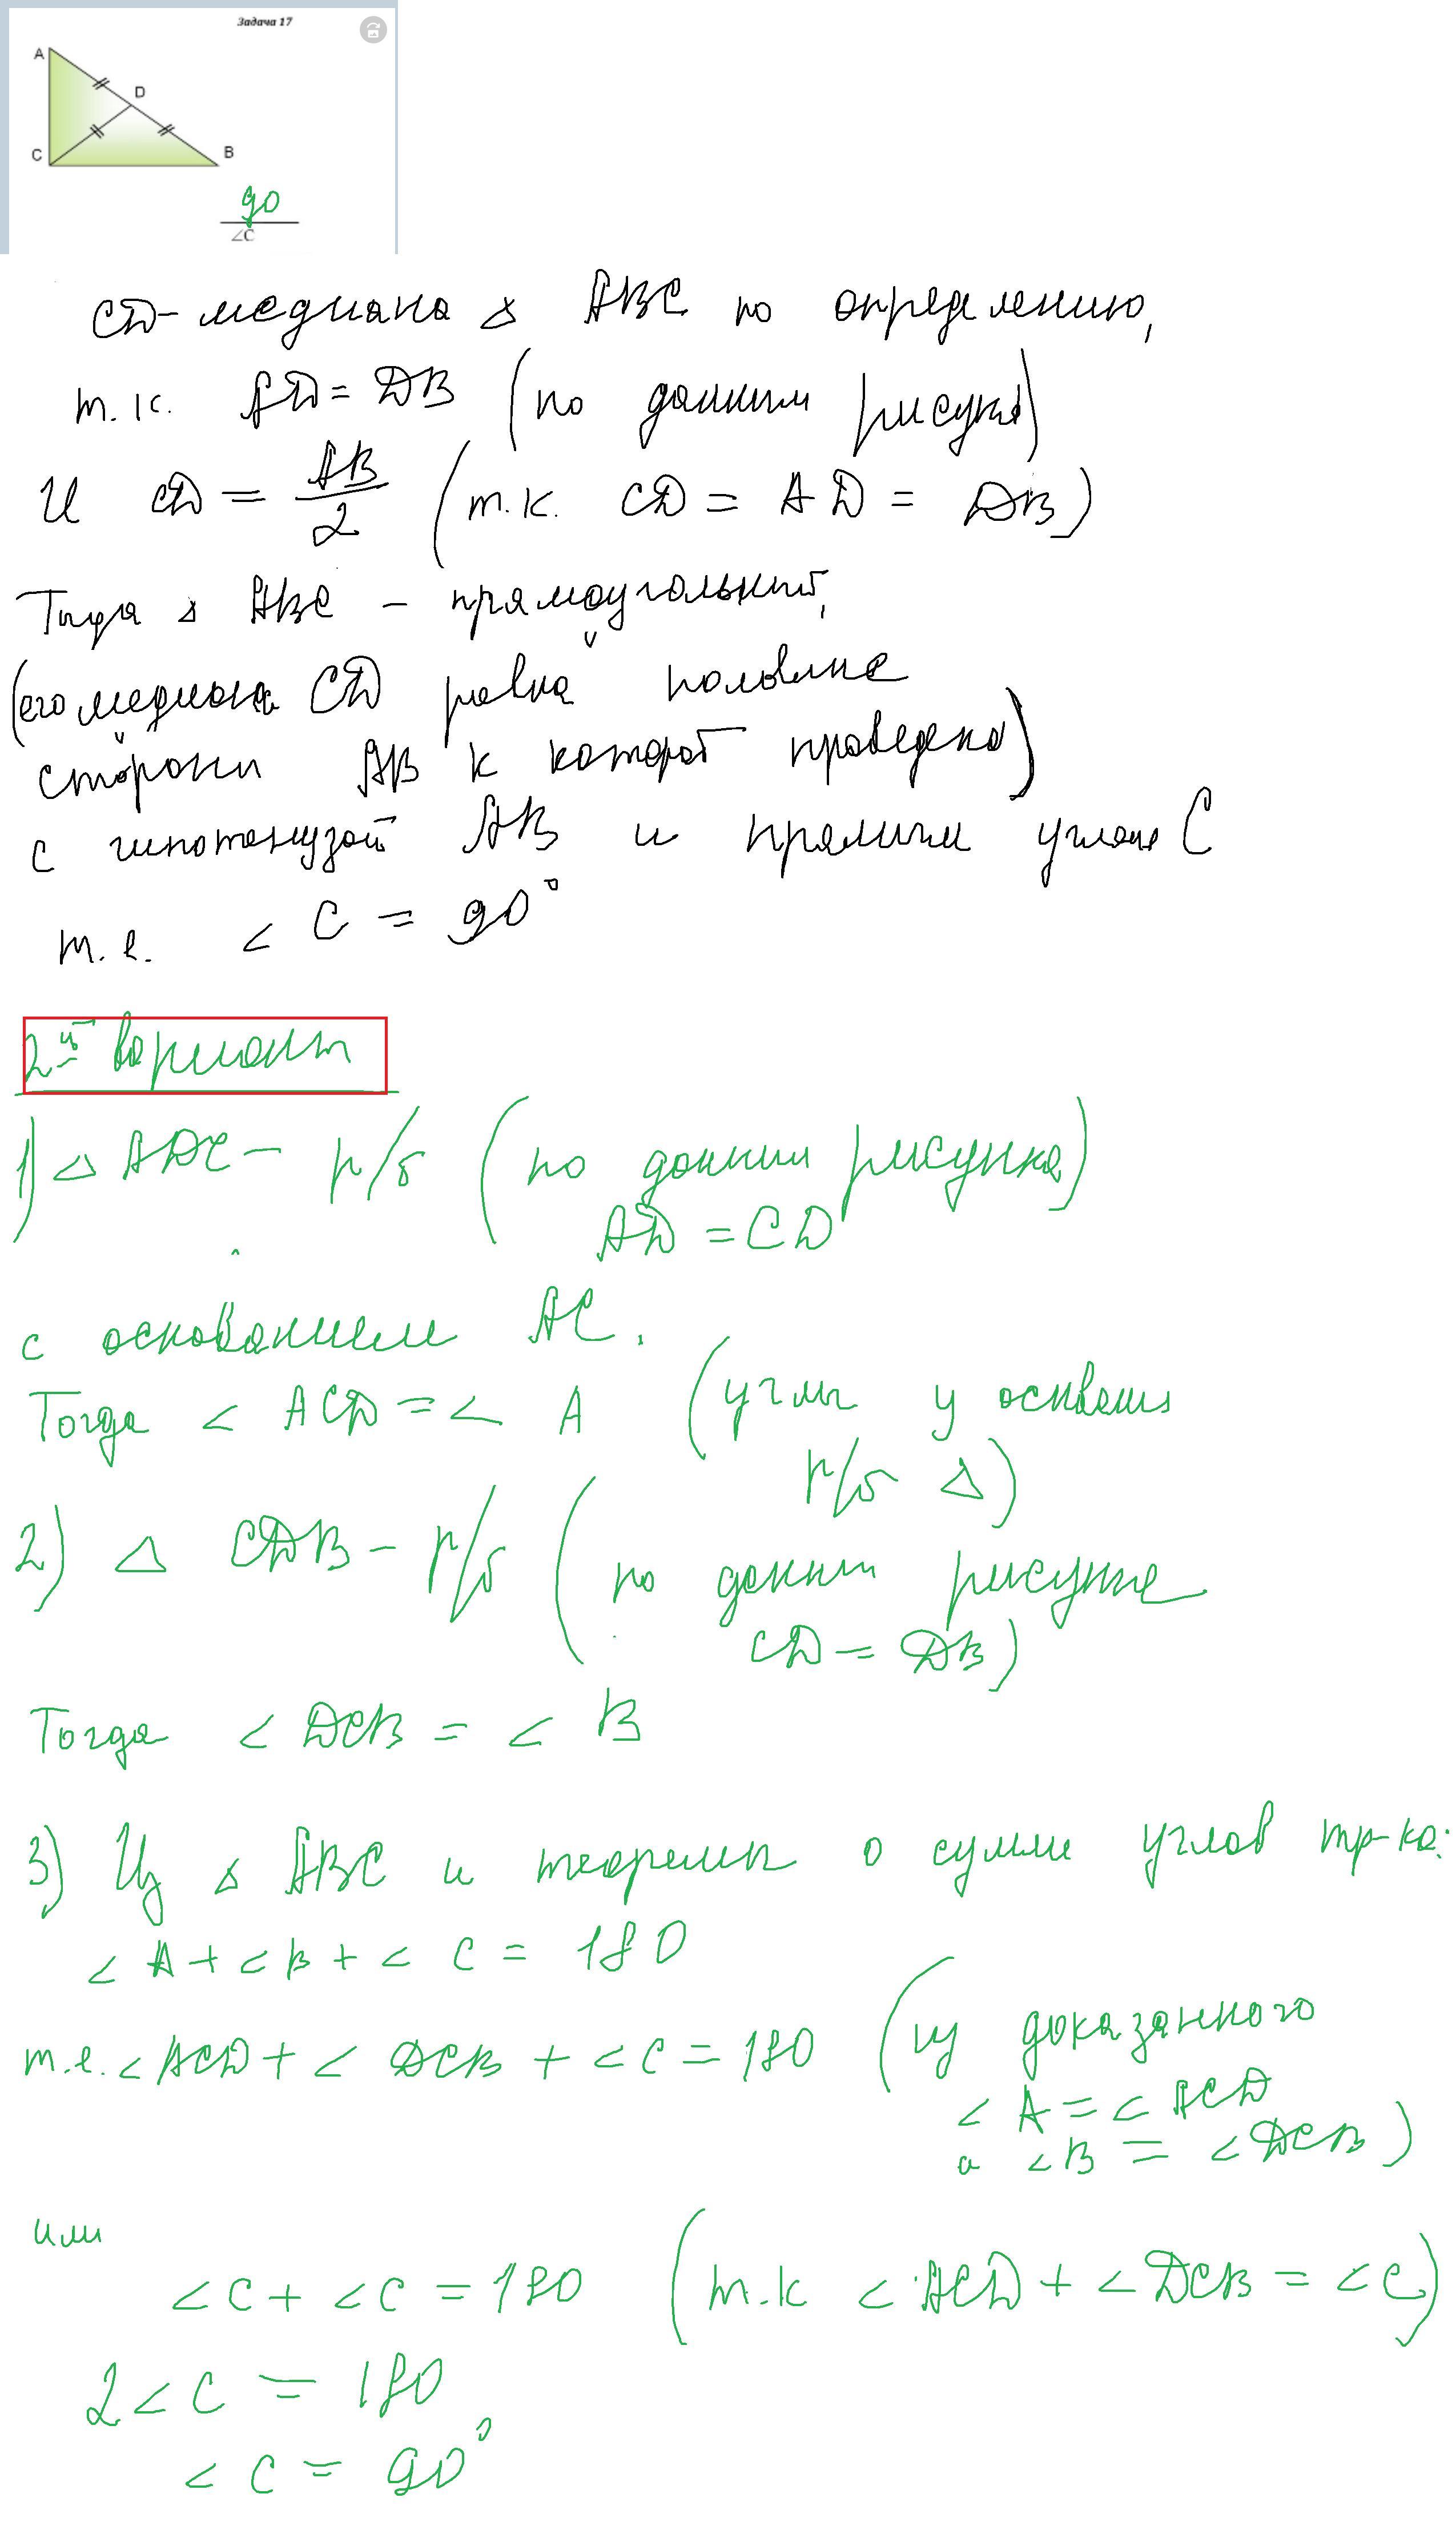 Задача 17
A
D
C
B
90
∠C
CD-медиана △ ABC по определению,
т.к. AD = DB (по данным рисунка)
И CD = AB/2 (т.к. CD = AD = DB)
Тогда △ ABC - прямоугольный,
(его медиана CD равна половине
стороны AB к которой проведена)
с гипотенузой AB и прямым углом C
т.е. ∠ C = 90°
2й вариант
1) △ ADC - р/б (по данным рисунка)
AD = CD
с основанием AC.
Тогда ∠ ACD = ∠ A (углы у основания
р/б △)
2) △ CDB - р/б (по данным рисунка
CD = DB)
Тогда ∠ DCB = ∠ B
3) Из △ ABC и теоремы о сумме углов тр-ка:
∠ A + ∠ B + ∠ C = 180
т.е. ∠ ACD + ∠ DCB + ∠ C = 180 (из доказанного
∠ A = ∠ ACD
а ∠ B = ∠ DCB)
или
∠ C + ∠ C = 180 (т.к ∠ ACD + ∠ DCB = ∠ C)
2 ∠ C = 180
∠ C = 90°